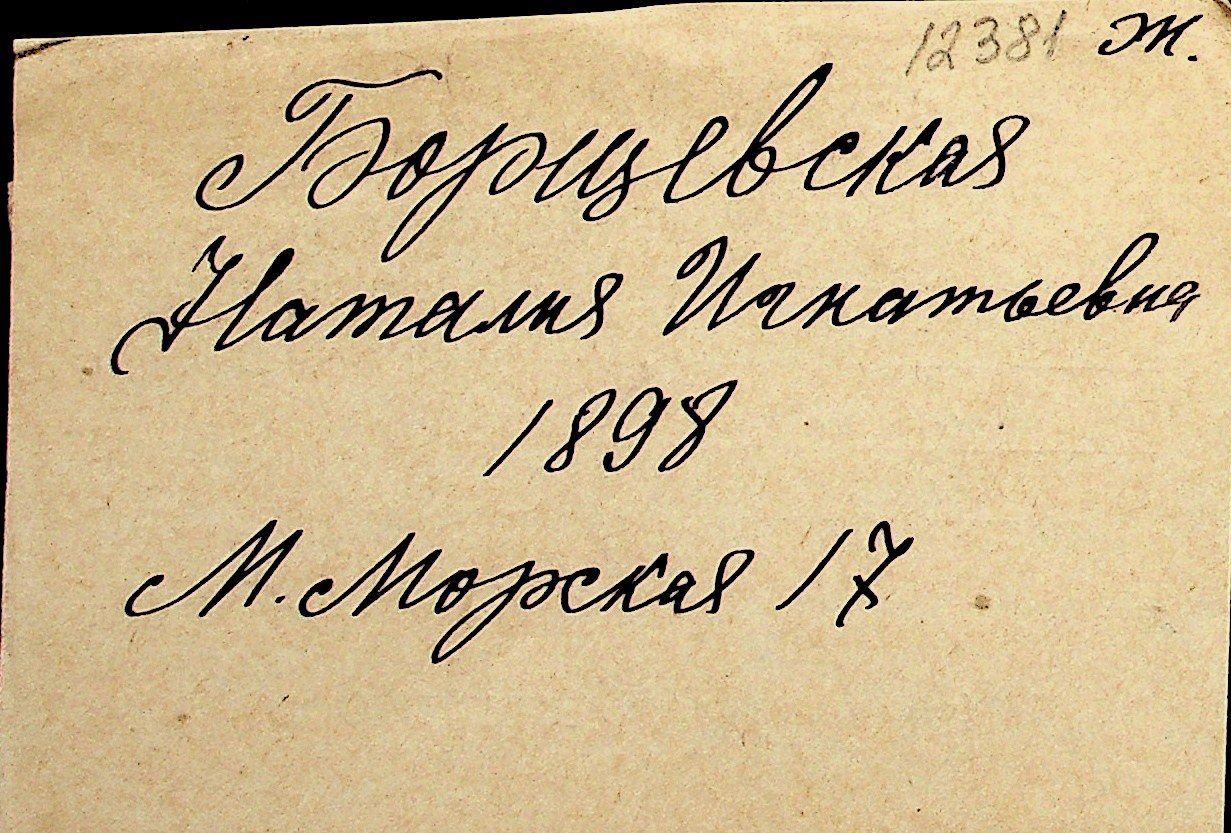 12381 Ж.
Борщевская
Наталия Игнатьевна
1898
М. Морская 17